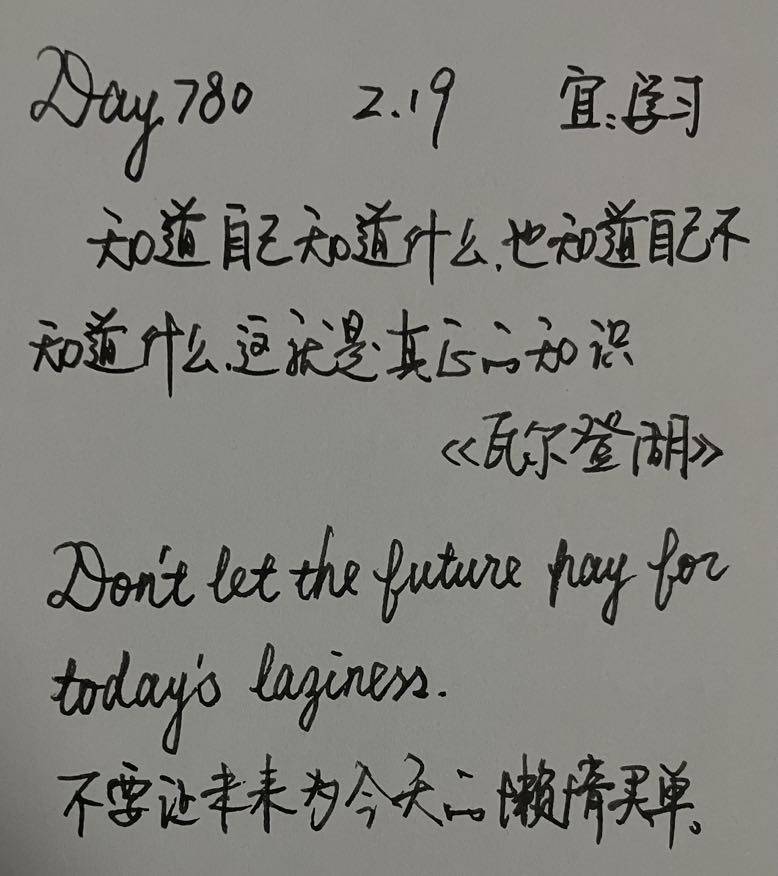 Day.780 2.19 宜:学习
知道自己知道什么,也知道自己不
知道什么,这就是真正的知识
《瓦尔登湖》
Don't let the future pay for
today's laziness.
不要让未来为今天的懒惰买单。